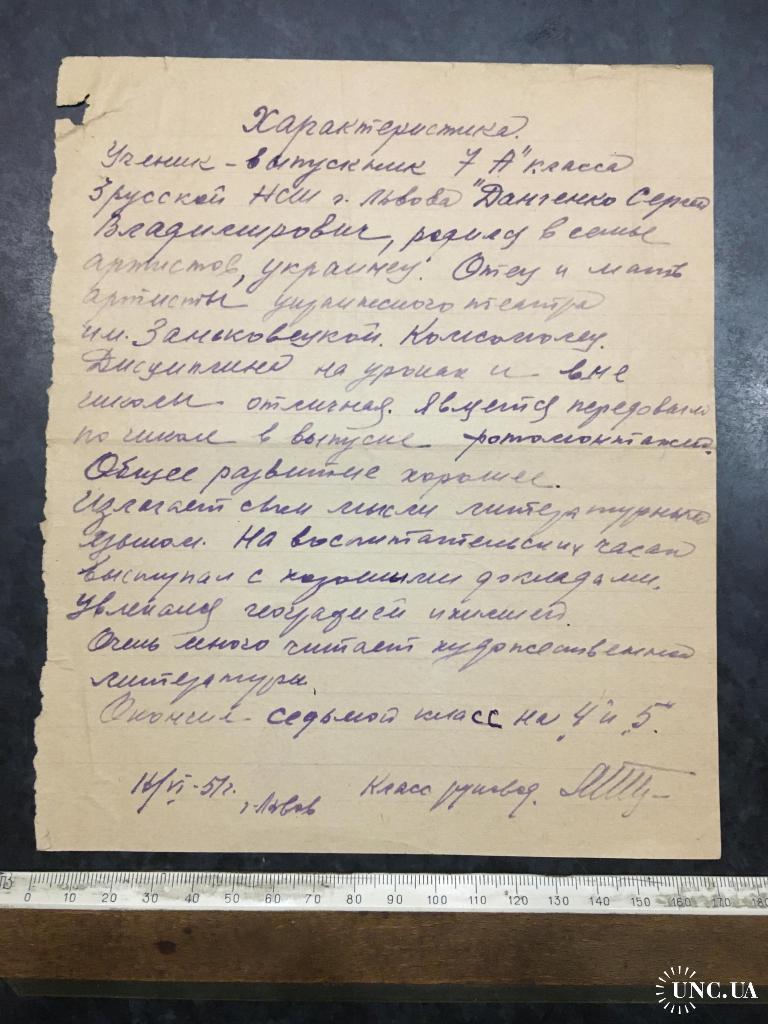 Характеристика.
Ученик - выпускник 7 "А" класса
3 русской НСШ г. Львова Данченко Сергей
Владимирович, родился в семье
артистов, украинец. Отец и мать
артисты украинского театра
им. Заньковецкой. Комсомолец.
Дисциплина на уроках и вне
школы отличная. Является передовым
по числом в выпуске фотомонтажей.
Общее развитие хорошее.
Излагает свои мысли литературным
языком. На воспитательских часах
выступал с хорошими докладами.
Увлекался географией и химией.
Очень много читает художественной
литературы.
Окончил седьмой класс на "4" и "5".
16/VI-51г.
г. Львов
Класс руковод.
0 10 20 30 40 50 60 70 80 90 100 110 120 130 140 150 160 170 180
UNC.UA